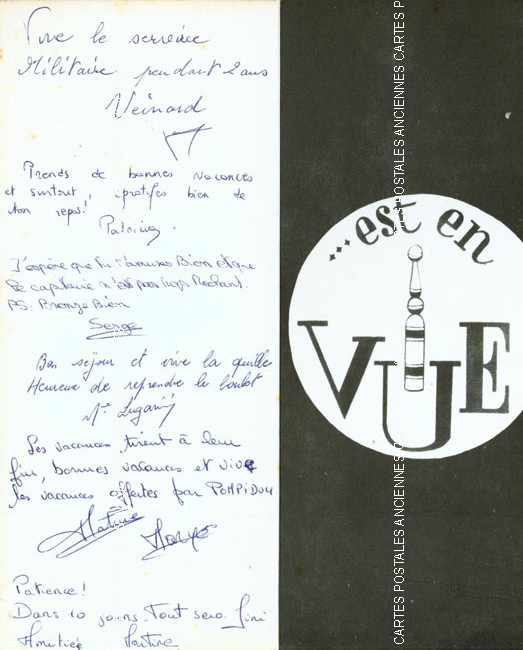 Vive le serveice
Militaire pendant 2 ans
Veinard
Prends de bonnes vacances
et surtout, profites bien de
ton repos!
Patricia
J'espère que tu t'amuses Bien et que
le capitaine n'est pas trop Mechant.
PS. Bronze Bien
Serge
Bon séjour et vive la quille
Heureux de reprendre le boulot
Les vacances tirent à leur
fin, bonnes vacances et vive
les vacances offertes par POMPIDOU
Patience!
Dans 10 jours. Tout sera fini
Amitiés Martine
...est en
VUE
CARTES POSTALES ANCIENNES CARTES P
CARTES POSTALES ANCIENNES CARTES POSTALES ANCIENNES